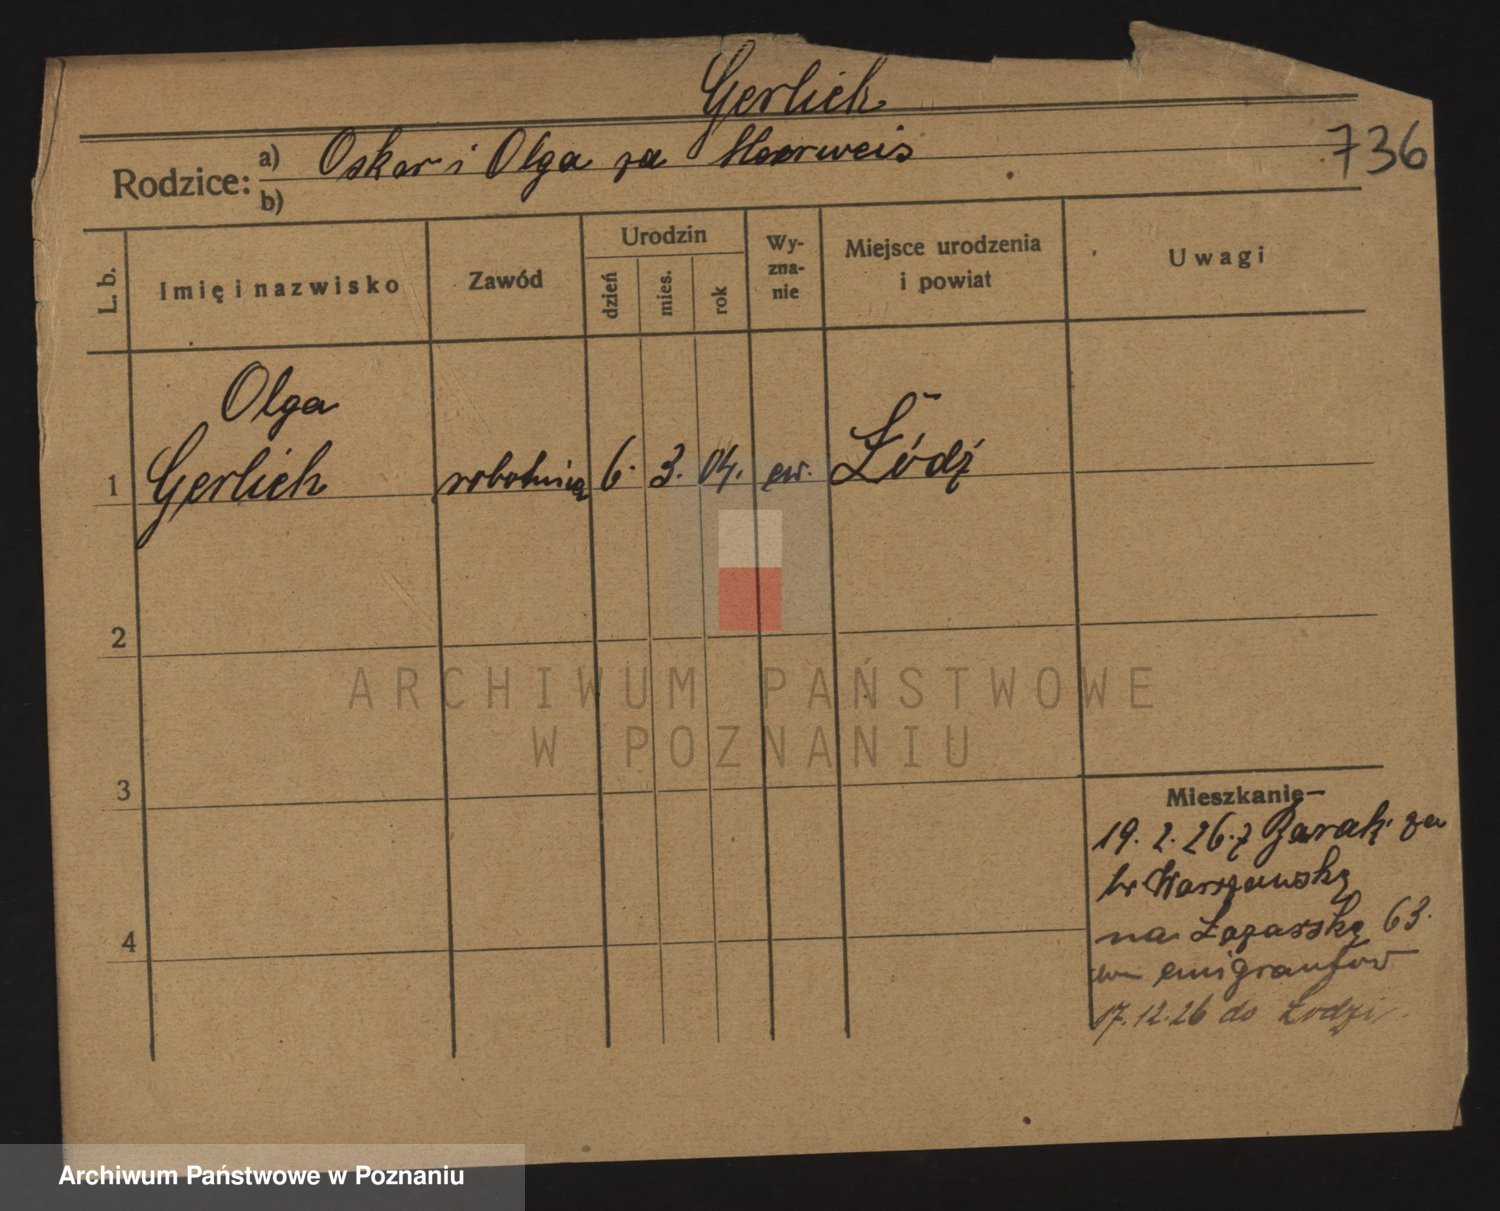 Gerlich
Rodzice: a) Oskar i Olga za Haarweis
b)
736
L. b.
Imię i nazwisko
Zawód
Urodzin
dzień
mies.
rok
Wy-
zna-
nie
Miejsce urodzenia
i powiat
Uwagi
Olga
1 Gerlich robotnica 6. 3. 04. ew. Łódź
2
3
4
Mieszkanie
19. 2. 26. z Barak. za
br Warszawską
na Łazarską 63.
emigrantów
17.12.26 do Łodzi.
ARCHIWUM PAŃSTWOWE
W POZNANIU
Archiwum Państwowe w Poznaniu